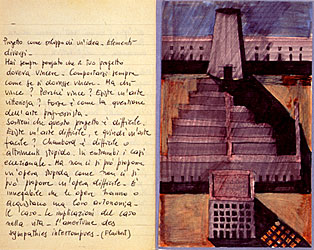 Progetto come sviluppo di un'idea - Elementi
diversi -
Hai sempre pensato che il tuo progetto
doveva vincere - Comportarsi sempre
come se si dovesse vincere - Ma chi
vince? Perché vince? Esiste un'arte
vittoriosa? Forse è come la questione
dell'arte progressista -
Sostieni che questo progetto è difficile -
Esiste un'arte difficile, e quindi un'arte
facile? Chambord è difficile o
altrimenti stupido. In entrambi i casi
eccezionale - Ma non ci si può proporre
un'opera stupida come non ci si
può proporre un'opera difficile - È
innegabile che le opere hanno o
acquistano una loro autonomia -
Il caso - le implicazioni del caso
nella vita - L'emotion des
sympathies interrompues - (Flaubert)